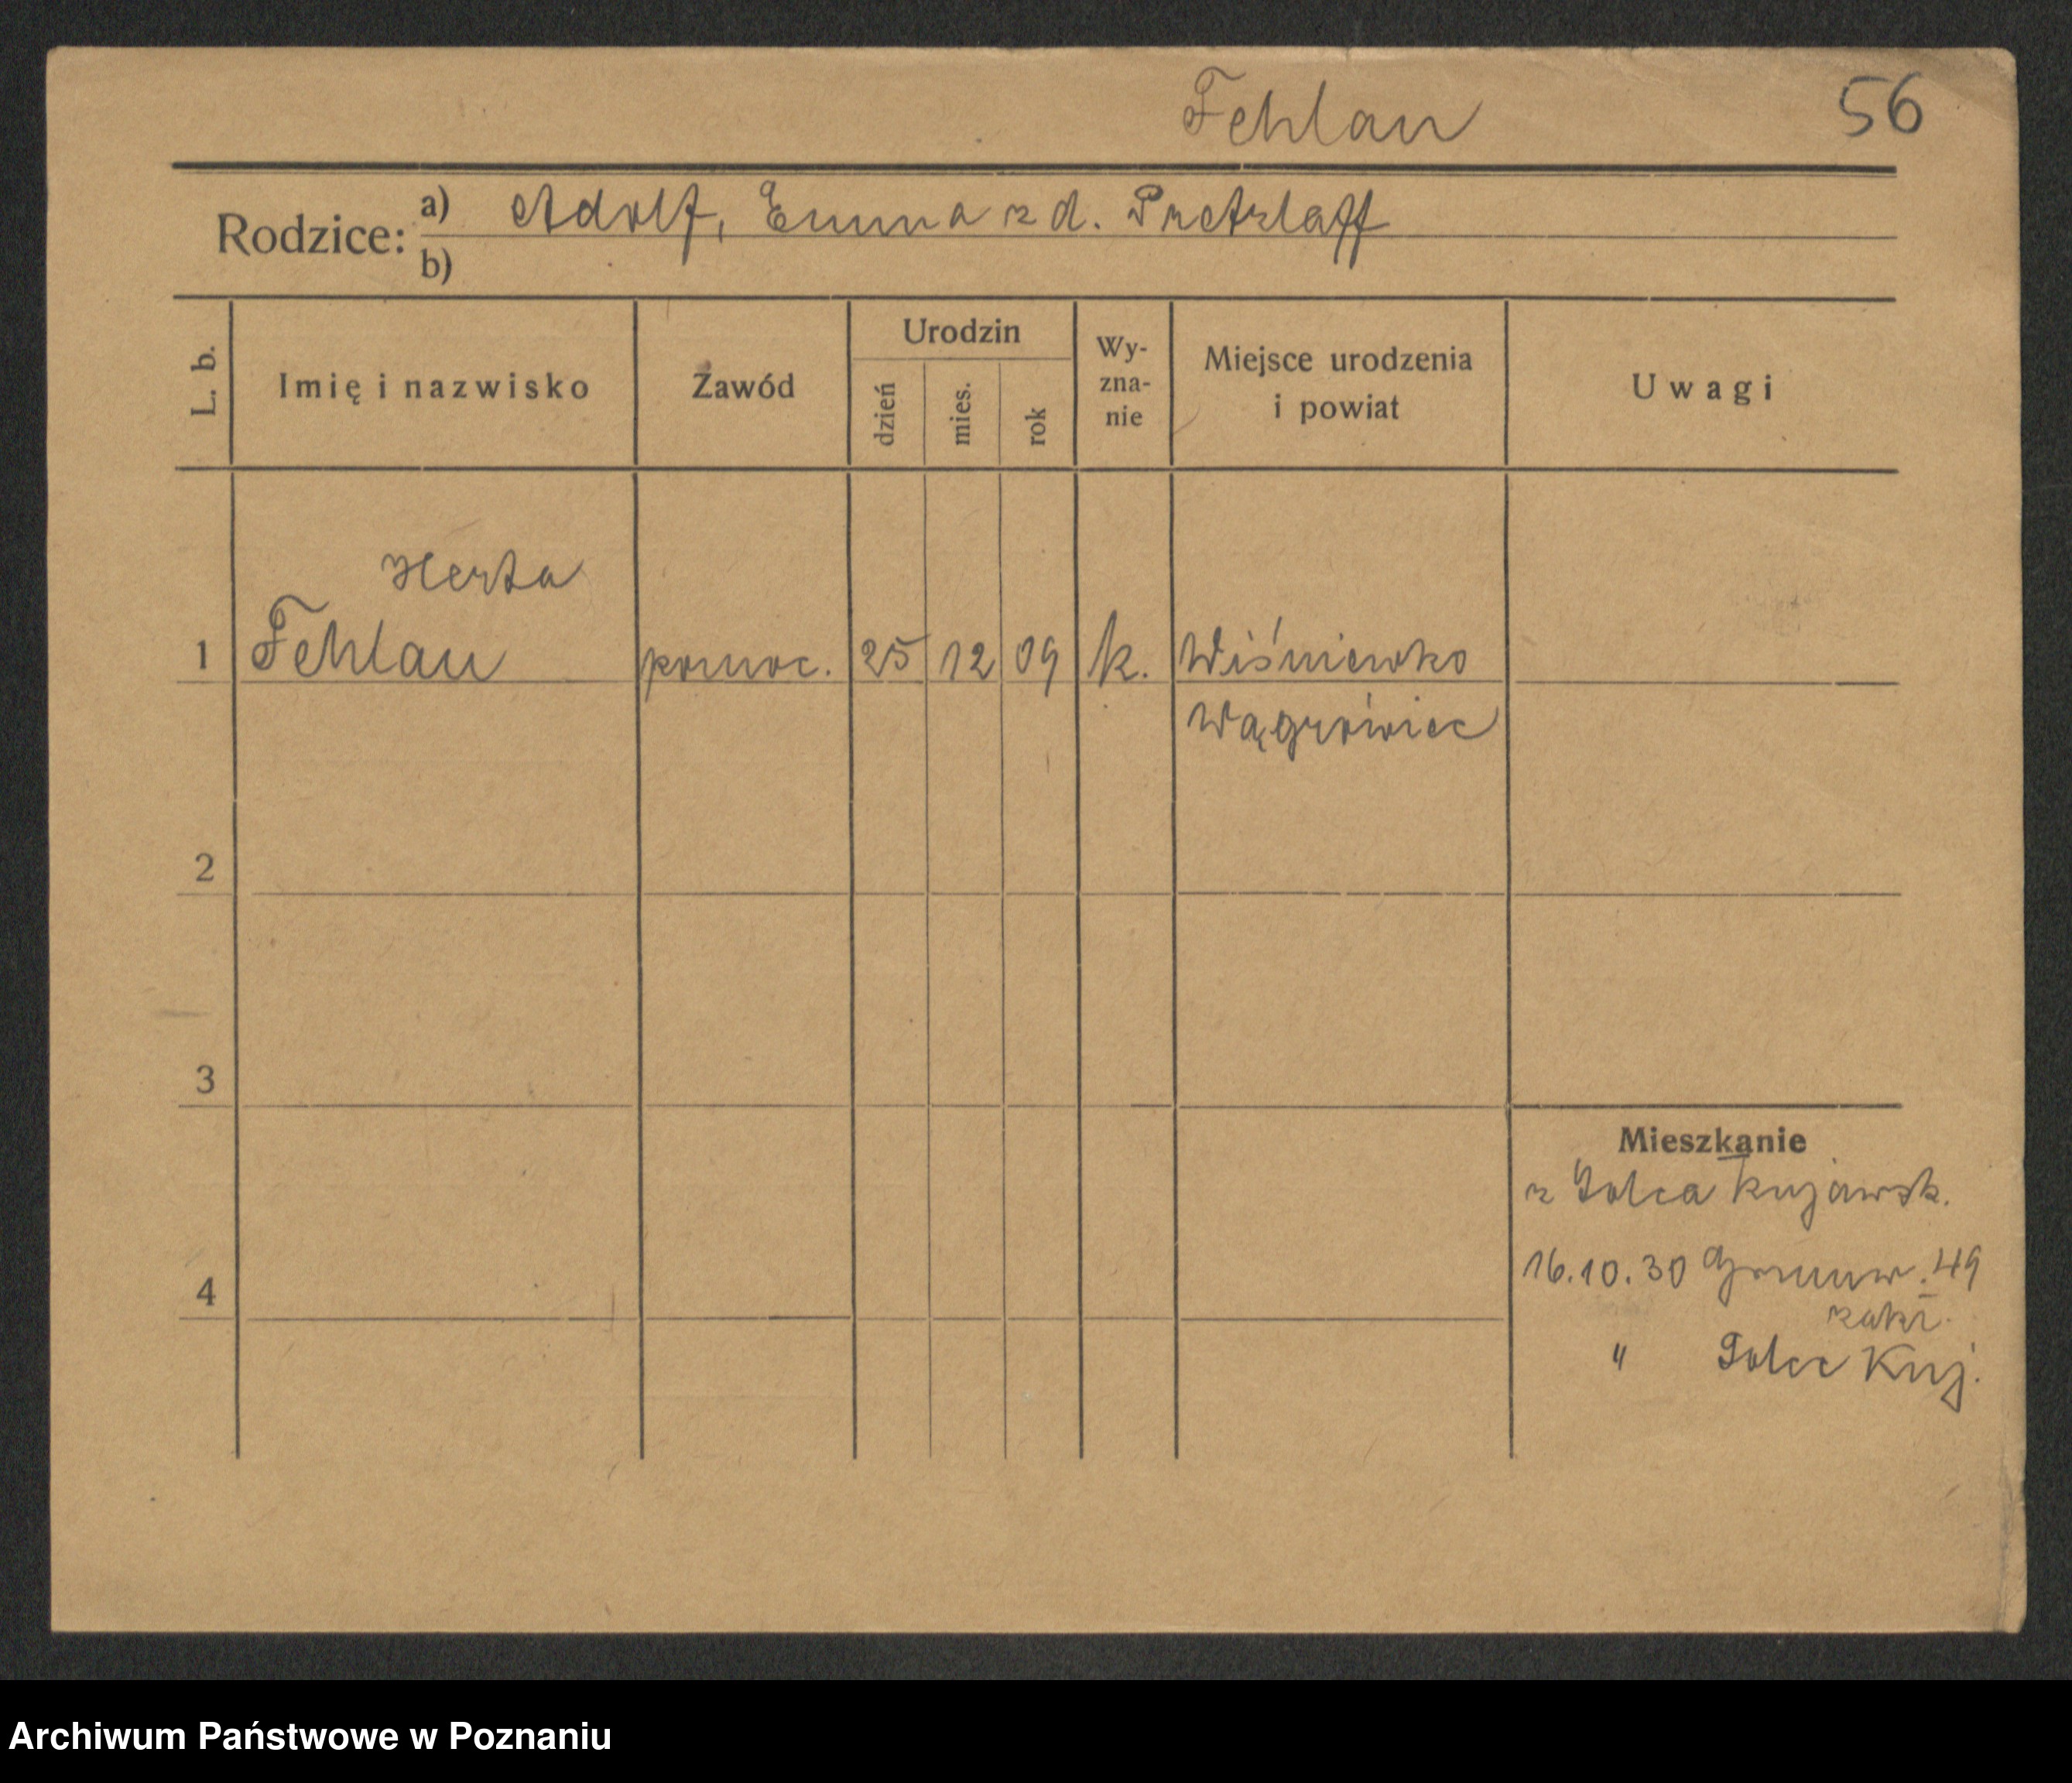 Fehlau 56
Rodzice: a) Adolf, Emma z d. Pretzlaff
b)
L. b. Imię i nazwisko Zawód Urodzin dzień mies. rok Wy-zna-nie Miejsce urodzenia i powiat Uwagi
Herta
1 Fehlau pomoc. 25 12 09 k. Wiśniewko
Wągrówiec
2
3
Mieszkanie
z Solca Kujawsk.
16.10.30 49
4
zakł.
" Solec Kuj.
Archiwum Państwowe w Poznaniu